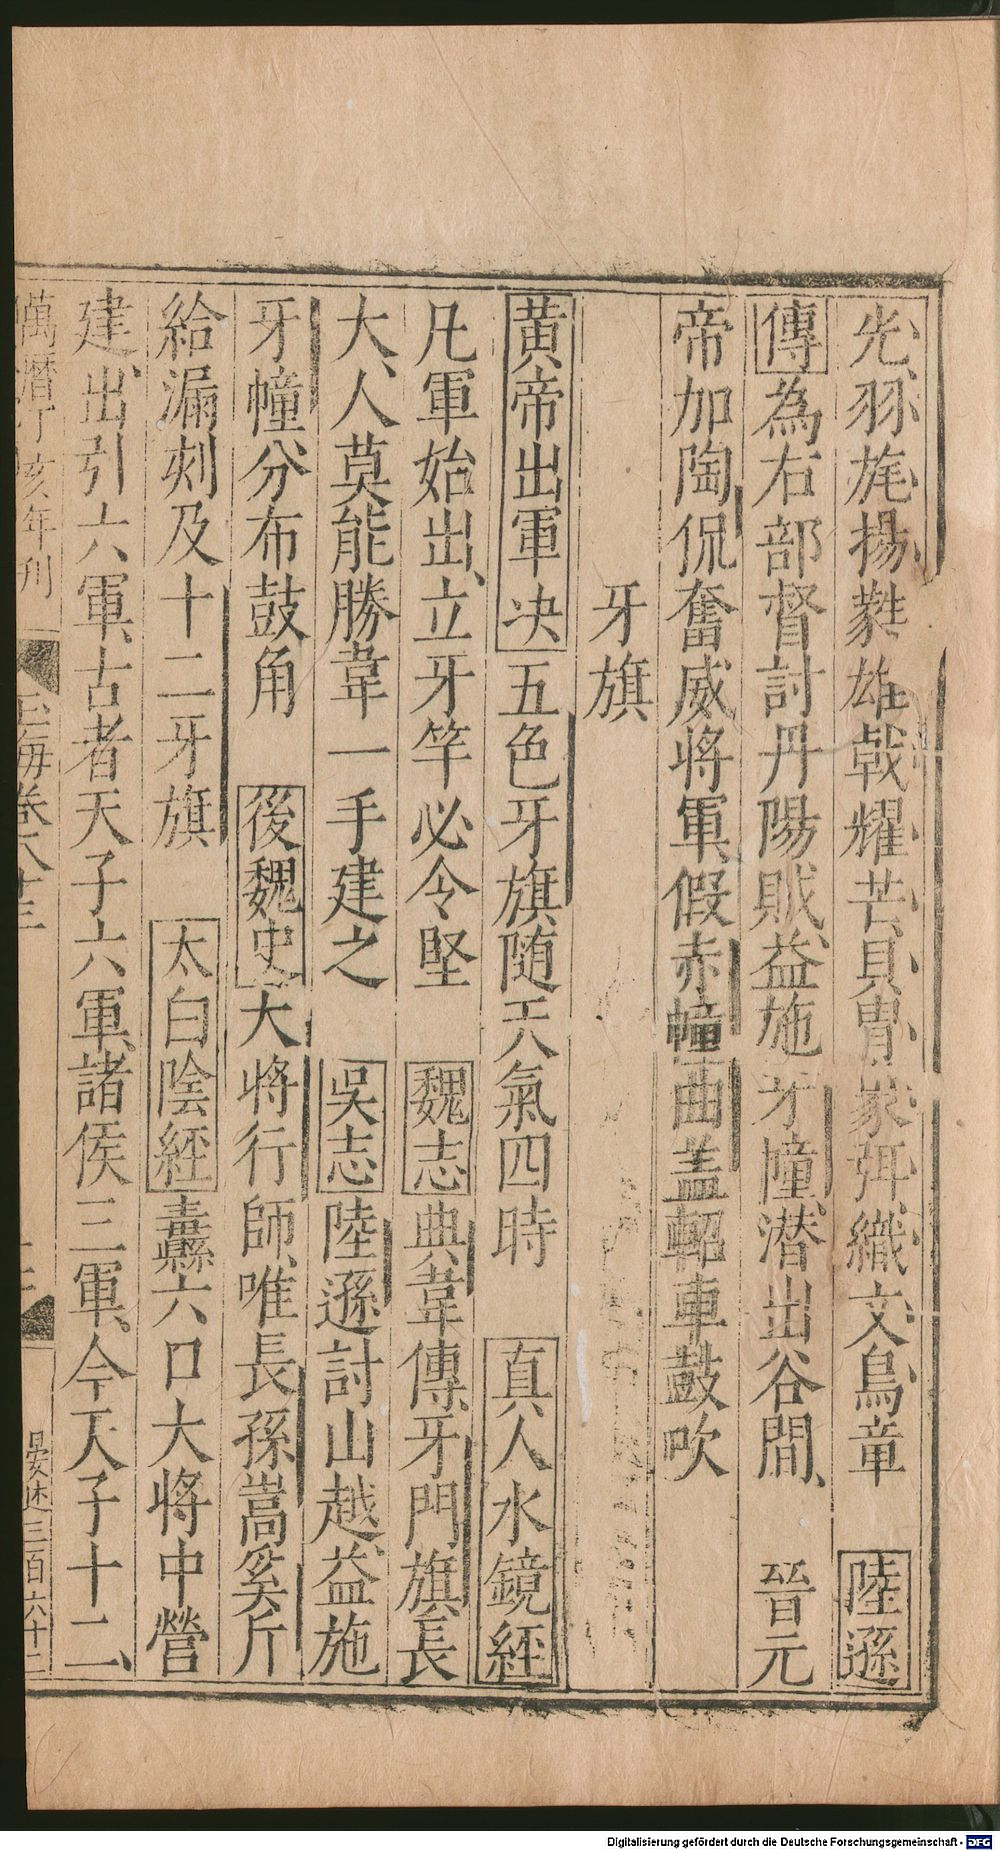 光羽旄揚蕤雄戟耀芒貝胄象弭織文鳥章　陸遜
傳為右部督討丹陽賊益施牙幢潜出谷間　晉元
帝加陶侃奮威將軍假赤幢曲盖軺車鼓吹
牙旗
黄帝出軍决五色牙旗随天氣四時　真人水鏡經
凡軍始出立牙竿必令堅　魏志典韋傳牙門旗長
大人莫能勝韋一手建之　吳志陸遜討山越益施
牙幢分布鼓角　後魏史大將行師唯長孫嵩奚斤
給漏刻及十二牙旗　太白陰經纛六口大將中營
建出引六軍古者天子六軍諸侯三軍今天子十二
萬曆丁亥年刊　玉海卷八十三　晏述三百六十二
Digitalisierung gefördert durch die Deutsche Forschungsgemeinschaft - DFG